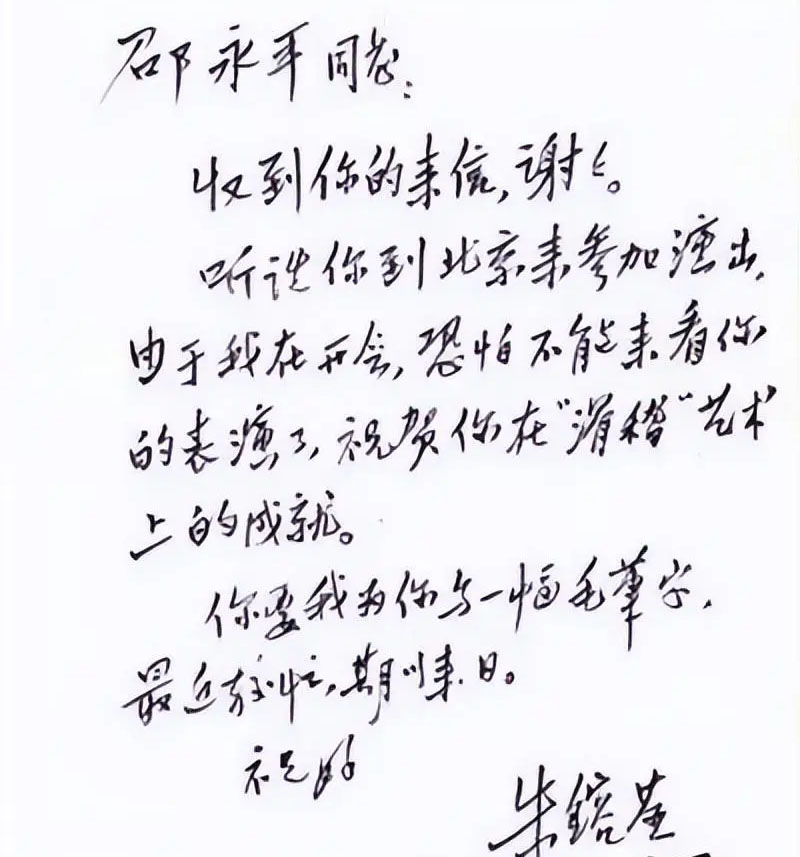 邵永平同志：
收到你的来信，谢々。
听说你到北京来参加演出，
由于我在开会，恐怕不能来看你
的表演了，祝贺你在“滑稽”艺术
上的成就。
你要我为你写一幅毛筆字，
最近较忙，期以来日。
祝好
朱镕基